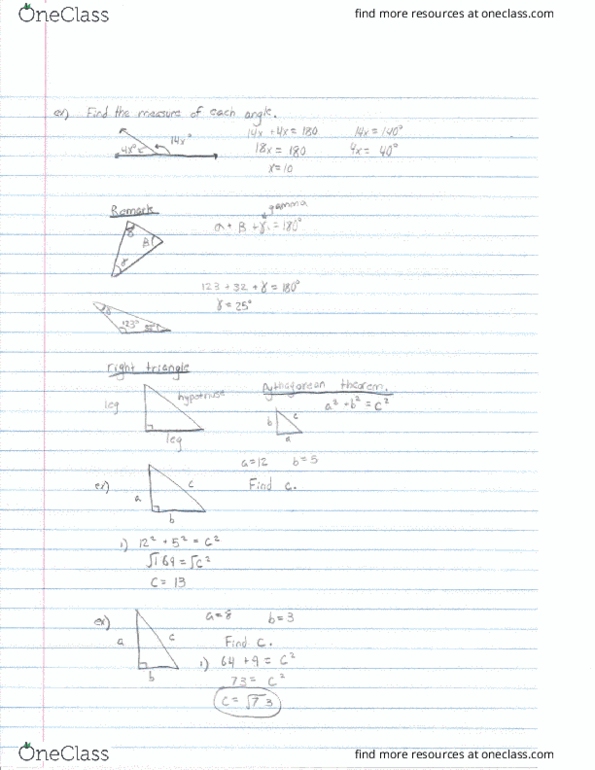 OneClass
find more resources at oneclass.com
ex) Find the measure of each angle.
4x° 14x°
14x + 4x = 180 14x = 140°
18x = 180 4x = 40°
x = 10
Remark
gamma
α + β + γ = 180°
β
γ
123 + 32 + γ = 180°
γ = 25°
123°
right triangle
leg hypotnuse
leg
pythagorean theorem.
a² + b² = c²
b c
a
a=12 b=5
ex) Find c.
a c
b
1) 12² + 5² = c²
√169 = √c²
c = 13
a=8 b=3
ex)
a c
b
Find c.
1) 64 + 9 = c²
73 = c²
c = √73
OneClass
find more resources at oneclass.com